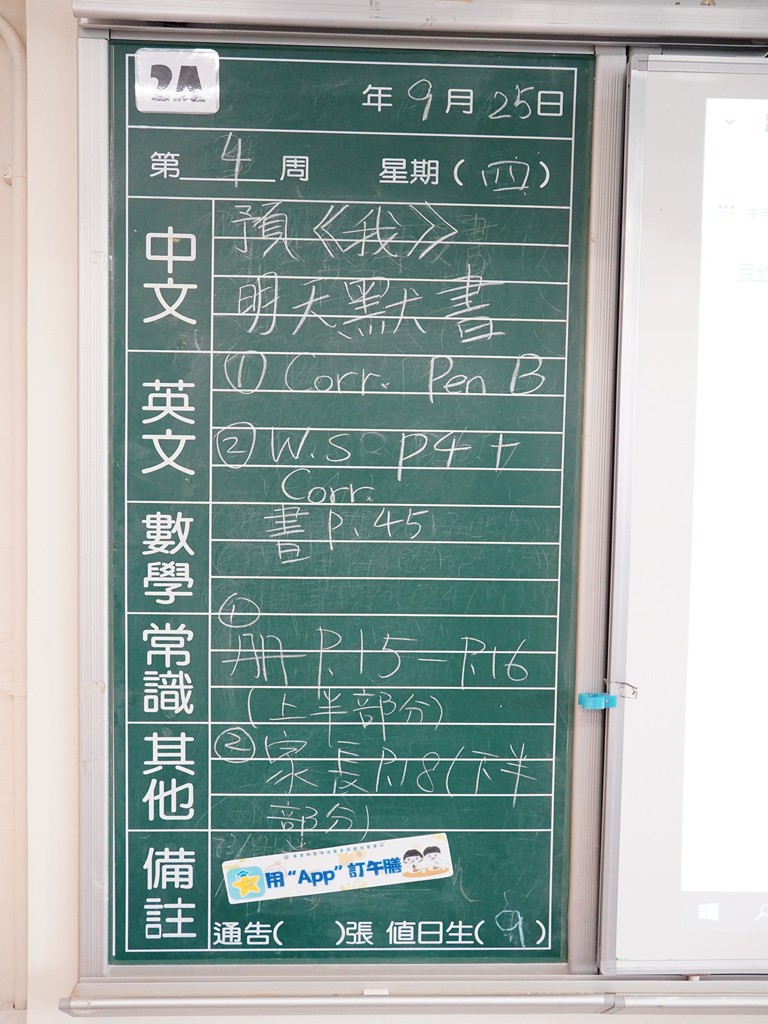 2A
年 9 月 25 日
第 4 周 星期 ( 四 )
中文
預《我》
明天默書
英文
① Corr. Pen B
② W.S P4 +
Corr.
數學
書 P. 45
常識
①
册 P.15 - P.16
(上半部分)
其他
② 家長P.18(下半
部分)
備註
用 “App” 訂午膳
通告( )張 值日生( 9 )